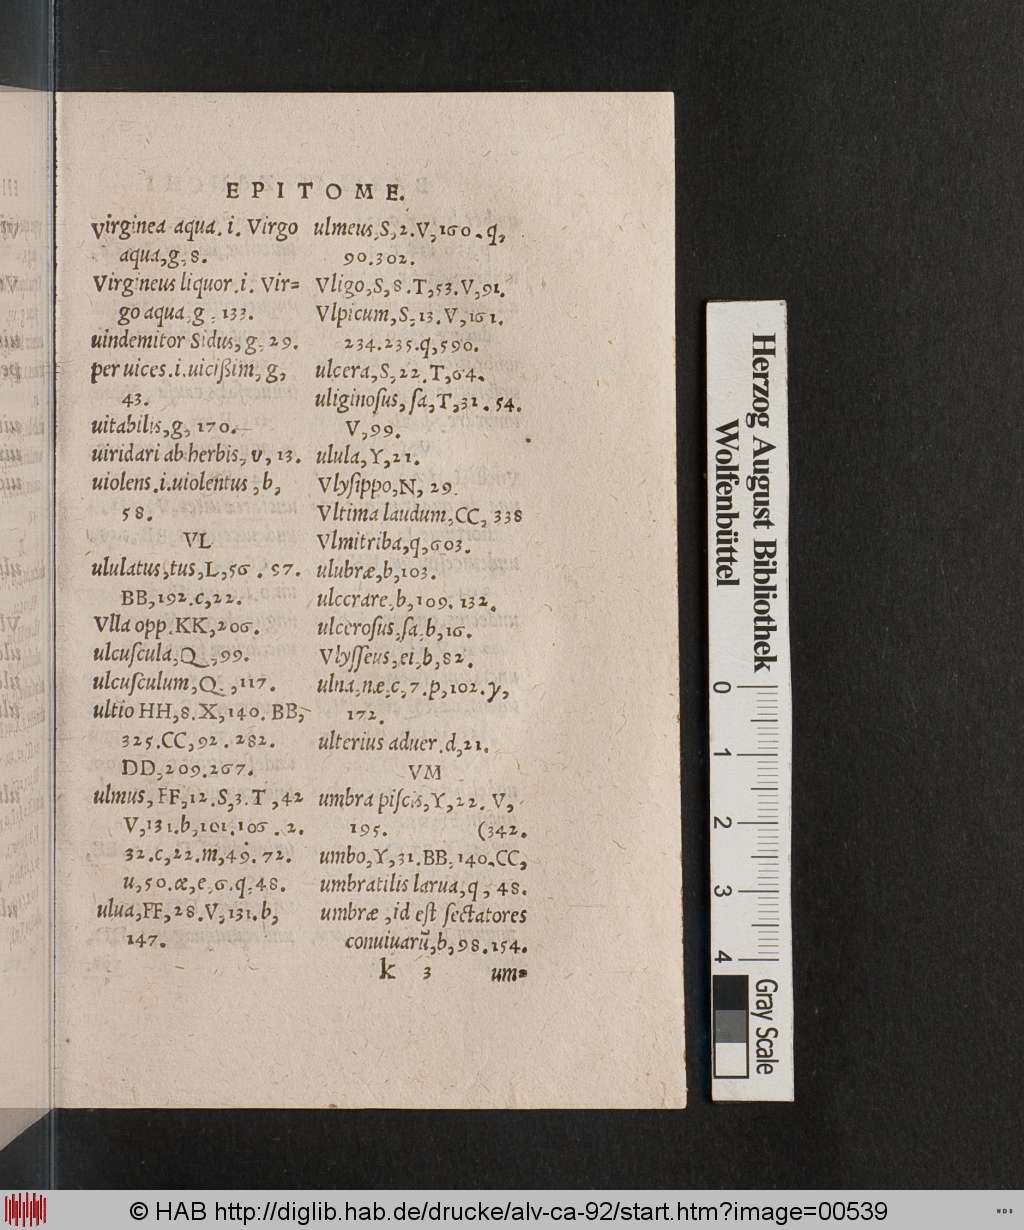 EPITOME.
virginea aqua. i. Virgo
aqua, g, 8.
Virgineus liquor. i. Vir=
go aqua, g, 133.
uindemitor Sidus, g, 29.
per uices. i. uicißim, g,
43.
uitabilis, g, 170.
uiridari ab herbis, v, 13.
uiolens. i. uiolentus, b,
58.
VL
ululatus, tus, L, 56. 97.
BB, 192. c, 22.
Vlla opp. KK, 206.
ulcuſcula, Q, 99.
ulcuſculum, Q, 117.
ultio HH, 8. X, 140. BB,
325. CC, 92. 282.
DD, 209. 267.
ulmus, FF, 12. S, 3. T, 42
V, 131. b, 101. 106. 2.
32. c, 22. m, 49. 72.
u, 50. æ, e, 6. q, 48.
ulua, FF, 28. V, 131. b,
147.
ulmeus, S, 2. V, 160. q,
90. 302.
Vligo, S, 8. T, 53. V, 91.
Vlpicum, S, 13. V, 161.
234. 235. q, 590.
ulcera, S, 22. T, 64.
uliginoſus, ſa, T, 31. 54.
V, 99.
ulula, Y, 21.
Vlyſippo, N, 29.
Vltima laudum, CC, 338
Vlmitriba, q, 603.
ulubræ, b, 103.
ulcerare, b, 109. 132.
ulceroſus, ſa, b, 16.
Vlyſſeus, ei, b, 82.
ulna, næ, c, 7. p, 102. y,
172.
ulterius aduer. d, 21.
VM
umbra piſcis, Y, 22. V,
195. (342.
umbo, Y, 31. BB, 140. CC,
umbratilis larua, q, 48.
umbræ, id eſt ſectatores
conuiuarũ, b, 98. 154.
k 3 um=
Herzog August Bibliothek
Wolfenbüttel
0 1 2 3 4
Gray Scale
© HAB http://diglib.hab.de/drucke/alv-ca-92/start.htm?image=00539